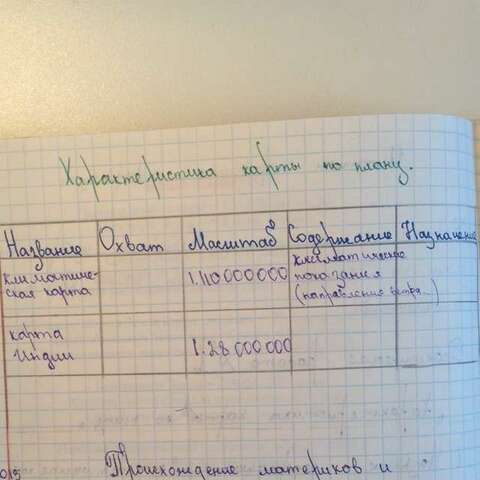 Характеристика карты по плану.
Название Охват Масштаб Содержание Назначение
климатиче- 1:110000000 климатические
ская карта показания
(направление ветра...)
карта
Индии 1:28000000
Происхождение материков и